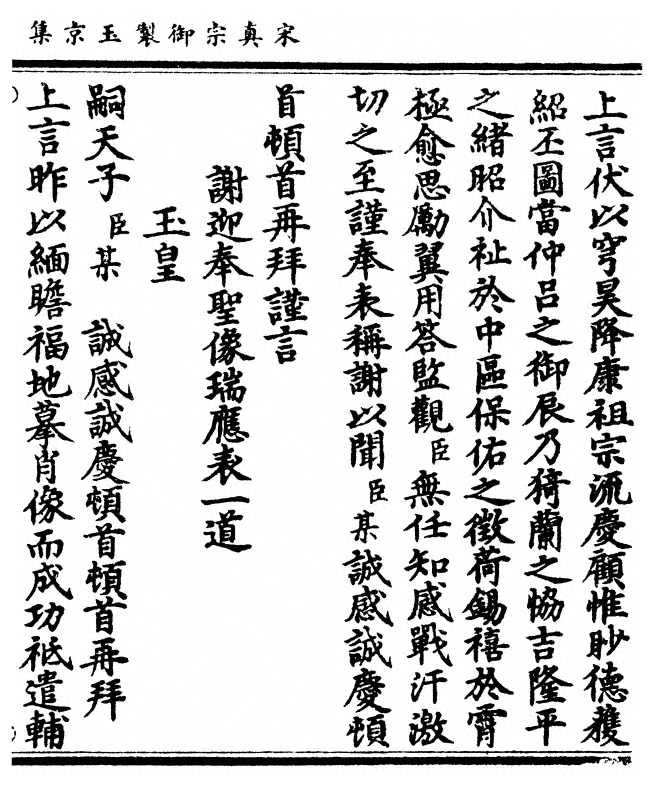 宋真宗御製玉京集
上言伏以穹昊降康祖宗流慶顧惟眇德獲
紹丕圖當仲呂之御辰乃猗蘭之恊吉隆平
之緒昭介祉於中區保佑之徵荷錫禧於霄
極愈思勵翼用答監觀臣無任知感戰汗激
切之至謹奉表稱謝以聞臣某誠感誠慶頓
首頓首再拜謹言
謝迎奉聖像瑞應表一道
玉皇
嗣天子臣某 誠感誠慶頓首頓首再拜
上言昨以緬瞻福地摹肖像而成功祗遣輔